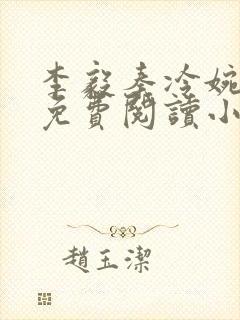 李毅秦冷婉
免費閱讀小
趙玉潔